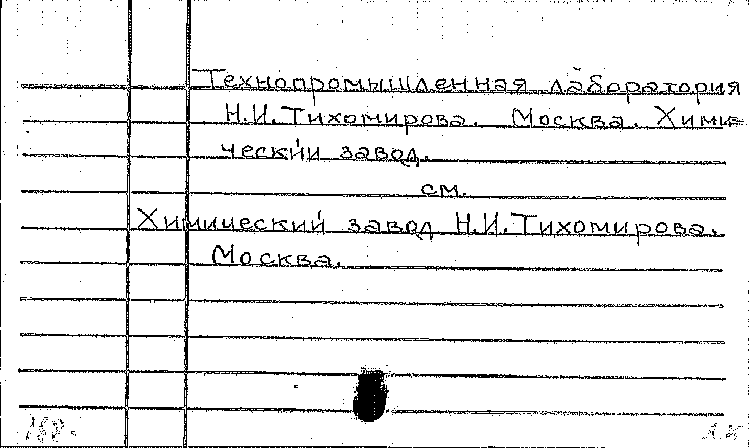 Технопромышленная лаборатория
Н.И. Тихомирова. Москва. Хими-
ческий завод.
см.
Химический завод Н.И. Тихомирова.
Москва.